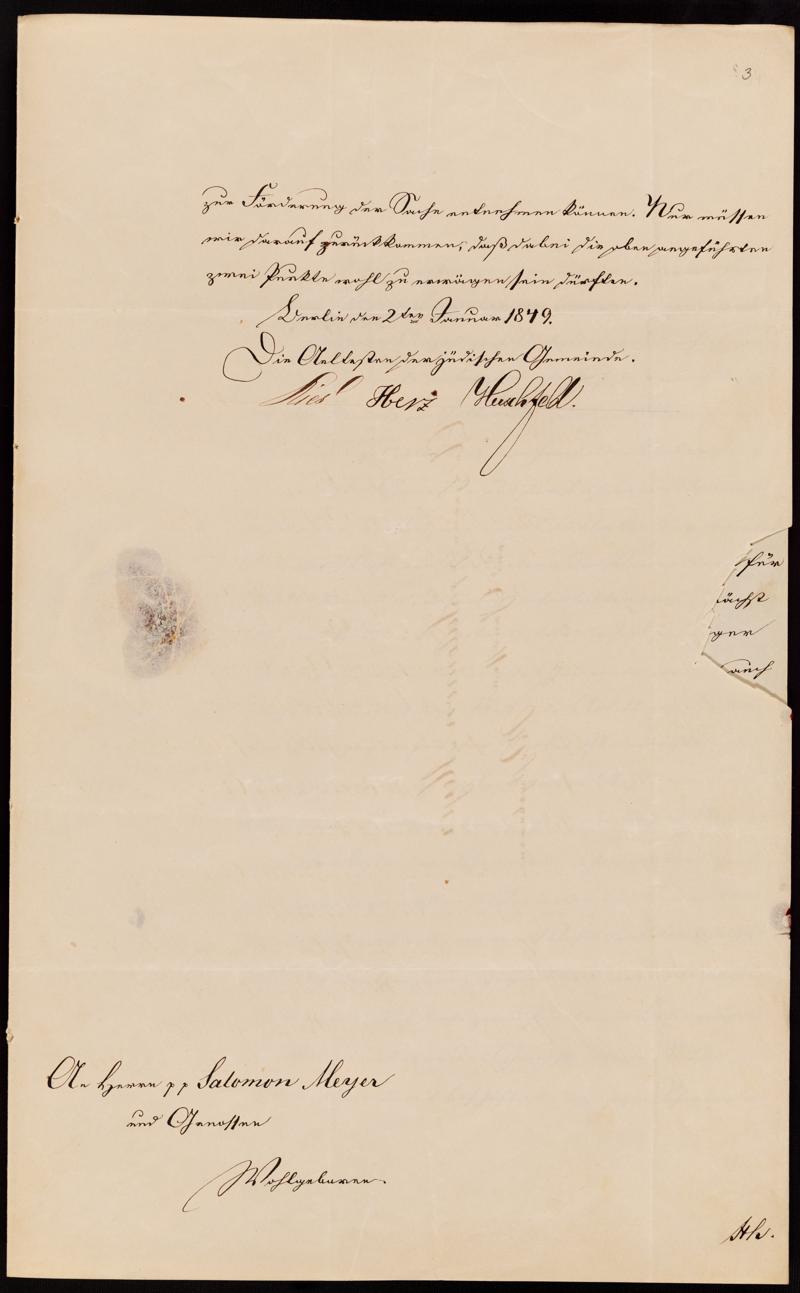 3
zur Förderung der Sache entnehmen können. Nur müssen
wir darauf zurückkommen, daß dabei die oben angeführten
zwei Punkte wohl zu erwägen sein dürften.
Berlin den 2ten Januar 1849.
Die Aeltesten der jüdischen Gemeinde.
Herz Hirschfeld.
für
ächst
ger
auch
An Herrn pp Salomon Meyer
und Genossen
Wohlgeboren.